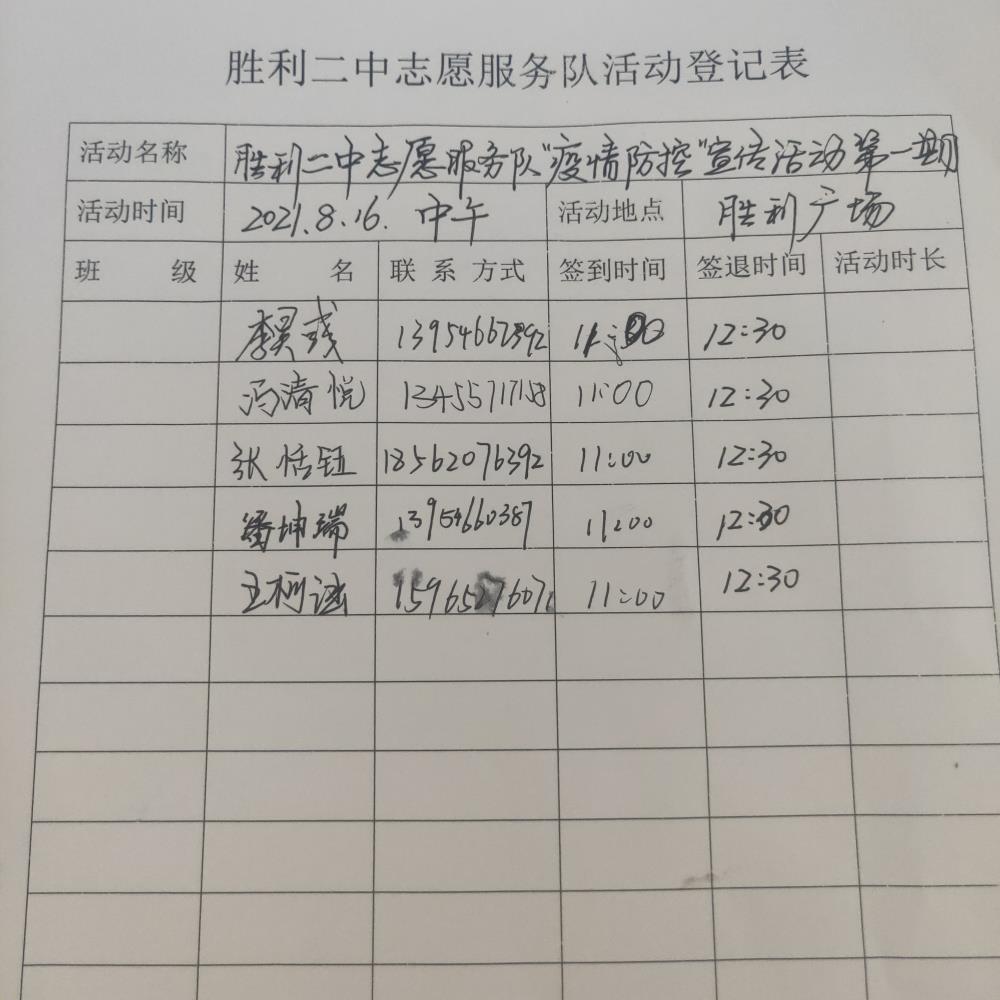 胜利二中志愿服务队活动登记表
活动名称 胜利二中志愿服务队"疫情防控"宣传活动第一期
活动时间 2021.8.16. 中午 活动地点 胜利广场
班 级 姓 名 联 系 方式 签到时间 签退时间 活动时长
李昊 11:00 12:30
冯清悦 13455717158 11:00 12:30
张恬钰 18562076392 11:00 12:30
潘坤瑞 13954660387 11:00 12:30
王柯 11:00 12:30